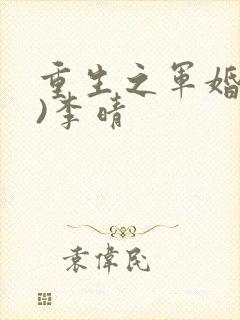 重生之军婚
)李晴
袁偉民